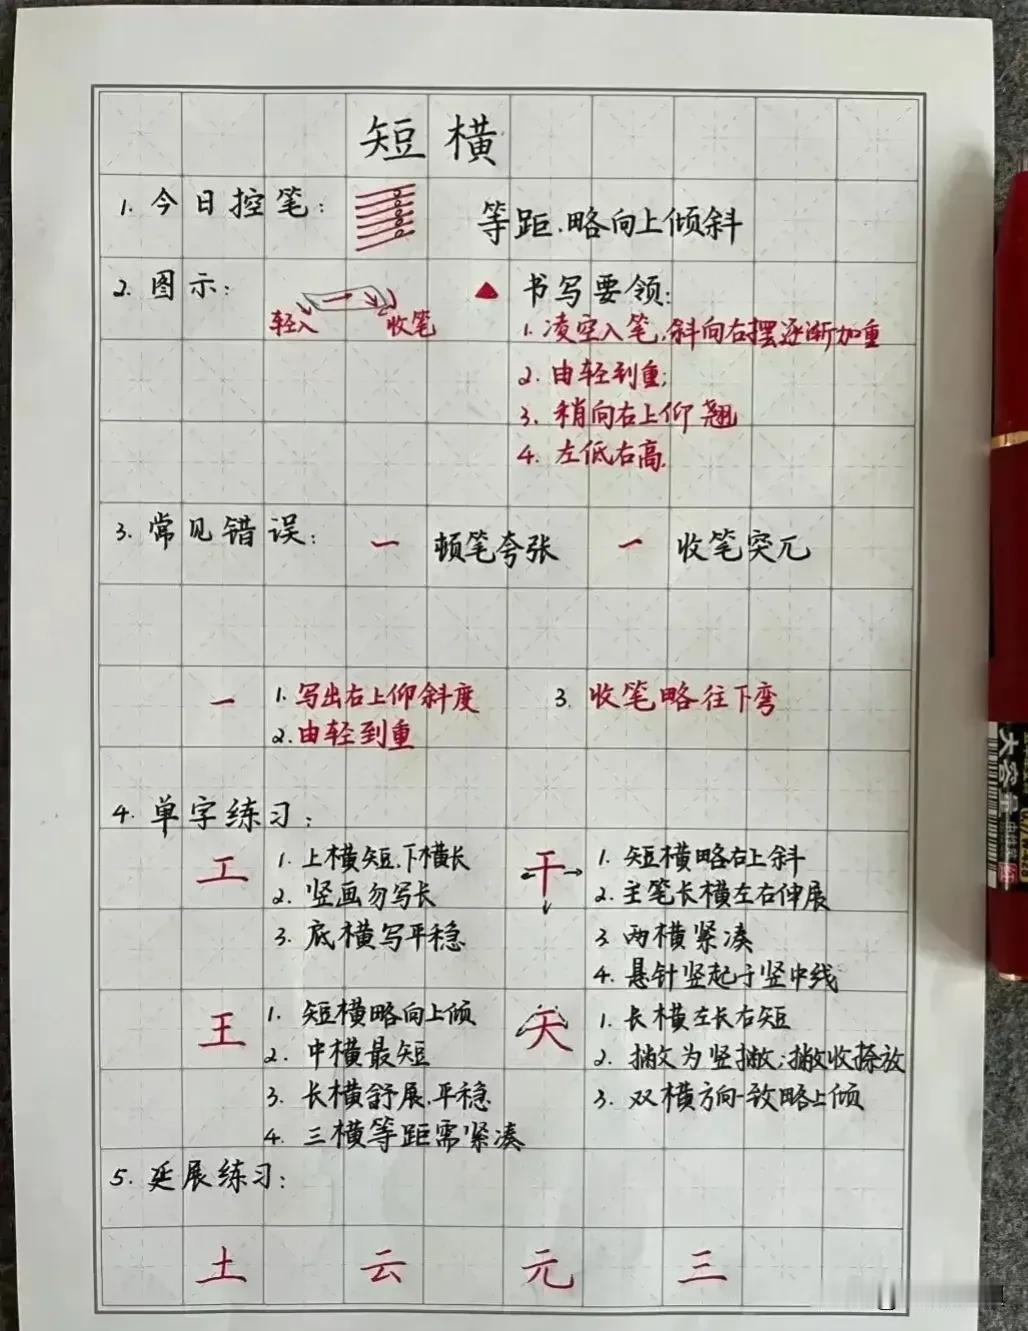 短横
1. 今日控笔： 等距.略向上倾斜
2. 图示： 轻入 收笔
▲ 书写要领：
1. 凌空入笔.斜向右摆逐渐加重
2. 由轻到重；
3. 稍向右上仰翘
4. 左低右高.
3. 常见错误： 一 顿笔夸张 一 收笔突兀
一 1. 写出右上仰斜度
2. 由轻到重
3. 收笔略往下弯
4. 单字练习：
工
1. 上横短.下横长
2. 竖画勿写长
3. 底横写平稳
干
1. 短横略右上斜
2. 主笔长横左右伸展
3. 两横紧凑
4. 悬针竖起于竖中线
王
1. 短横略向上倾
2. 中横最短
3. 长横舒展.平稳
4. 三横等距需紧凑
天
1. 长横左长右短
2. 撇为竖撇；撇收捺放
3. 双横方向一致略上倾
5. 延展练习：
土 云 元 三
大容量